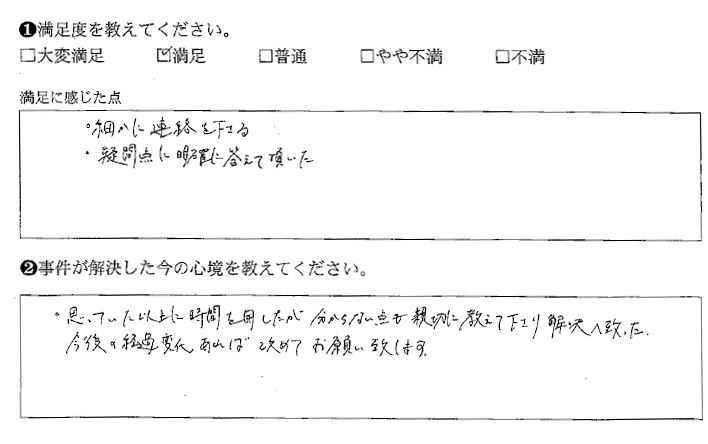 ❶満足度を教えてください。
□大変満足 ☑満足 □普通 □やや不満 □不満
満足に感じた点
・細かに連絡を下さる
・疑問点に明確に答えて頂いた
❷事件が解決した今の心境を教えてください。
・思っていた以上に時間を用したが 分からない点も親切に教えて下さり解決へ致った.
今後の経過変化あれば 改めてお願い致します.